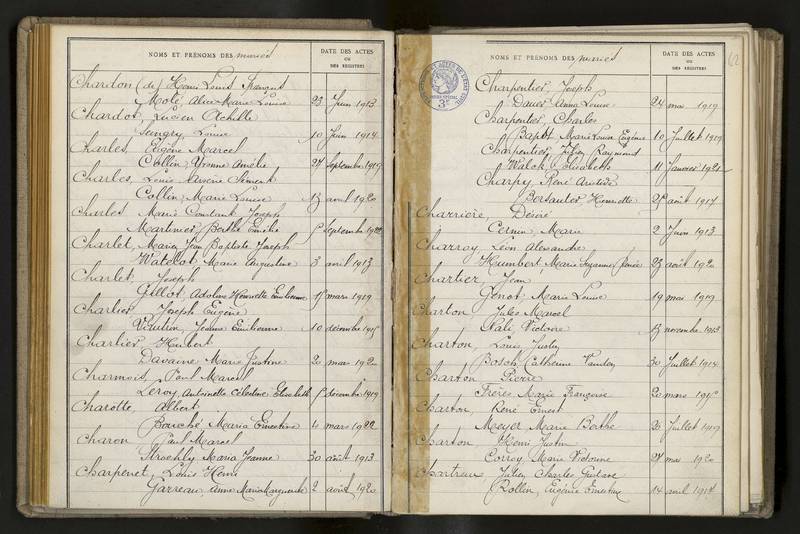 NOMS ET PRÉNOMS DES mariés
DATE DES ACTES
OU
DES REGISTRES
Chardon (de) Henri Louis François
Molé, Alice Marie Louise 23 Juin 1913
Chardot, Lucien Achille
Sungry, Louise 10 Juin 1914
Charles, Eugène Marcel
Collin, Yvonne Amélie 27 septembre 1919
Charles, Louis Arsène Clément
Collin, Marie Louise 13 avril 1920
Charles Marie Constant Joseph
Martinier, Berthe Emélie septembre 1922
Charlet, Marien Jean Baptiste Joseph
Watelot, Marie Augustine 3 avril 1913
Charlet, Joseph
Gillot, Adoline Henriette Emilienne 15 mars 1919
Charlier, Joseph Eugène
Jeanne Emilienne 10 décembre 1915
Charlier, Humbert
Davanne Marie Justine 20 mars 1920
Charmois, Paul Marcel
Leroy, Antoinette Célestine Elisabeth décembre 1919
Charotte, Albert
Bouché Maria Ernestine 4 mars 1922
Charon Paul Marcel
Strochly Maria Jeanne 30 août 1913
Charpenet, Louis Henri
Garreau, Anne Maria Marguerite 2 août 1920
NOMS ET PRÉNOMS DES mariés
DATE DES ACTES
OU
DES REGISTRES
62
Charpentier, Joseph
Dauer Anna Louise 24 mai 1919
Charpentier, Charles
Bapst, Marie Louise Eugénie 10 Juillet 1919
Charpentier, Raymond
Walck, Elisabeth 11 Janvier 1921
Charpy, René Aristide
Bersauter Henriette 25 août 1917
Charrière, Désiré
Cernin, Marie 2 Juin 1913
Charroy, Léon Alexandre
Humbert Marie Suzanne 23 août 1920
Chartier, Jean
Genot, Marie Louise 19 mai 1919
Charton Jules Marcel
Nali, Victoire 13 novembre 1913
Charton, Louis Justin
Bosch, Catherine 30 Juillet 1914
Charton Pierre
Frères Marie Françoise 20 mars
Charton, René Ernest
Meyer Marie Berthe 26 Juillet 1919
Charton Henri Justin
Corroy, Marie Victorine 27 mai 1920
Chartreux, Julien Charles Gustave
Rollin, Eugénie Ernestine 14 avril 1917